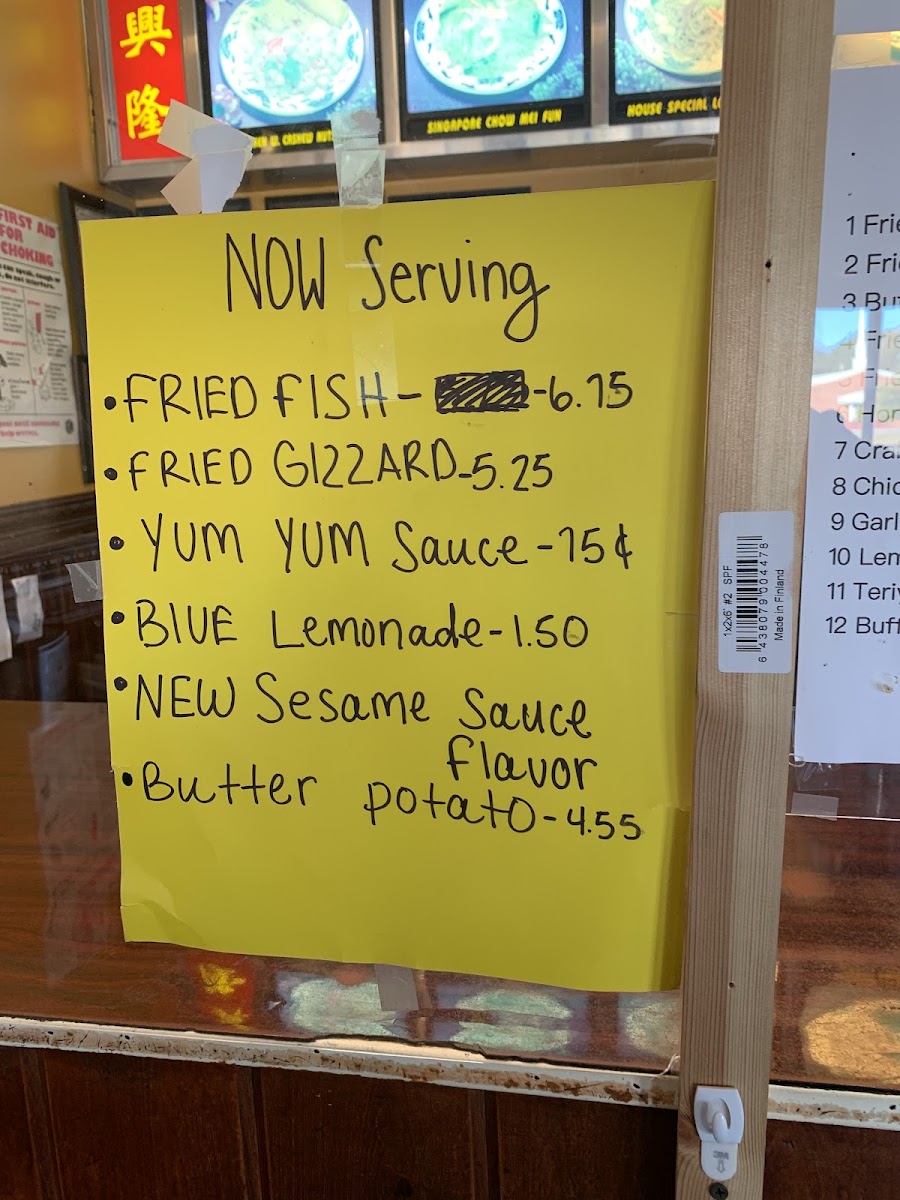 興
隆
SINGAPORE CHOW MEI FUN
HOUSE SPECIAL
FIRST AID
FOR
CHOKING
NOW Serving
• FRIED FISH - -6.75
• FRIED GIZZARD-5.25
• YUM YUM Sauce-75¢
• BLUE Lemonade-1.50
• NEW Sesame Sauce
flavor
• Butter potato-4.55
1x2x6' #2 SPF
6 438079 004478
Made in Finland
1 Frie
2 Frie
3 But
7 Cra
8 Chic
9 Garl
10 Lem
11 Teriy
12 Buff